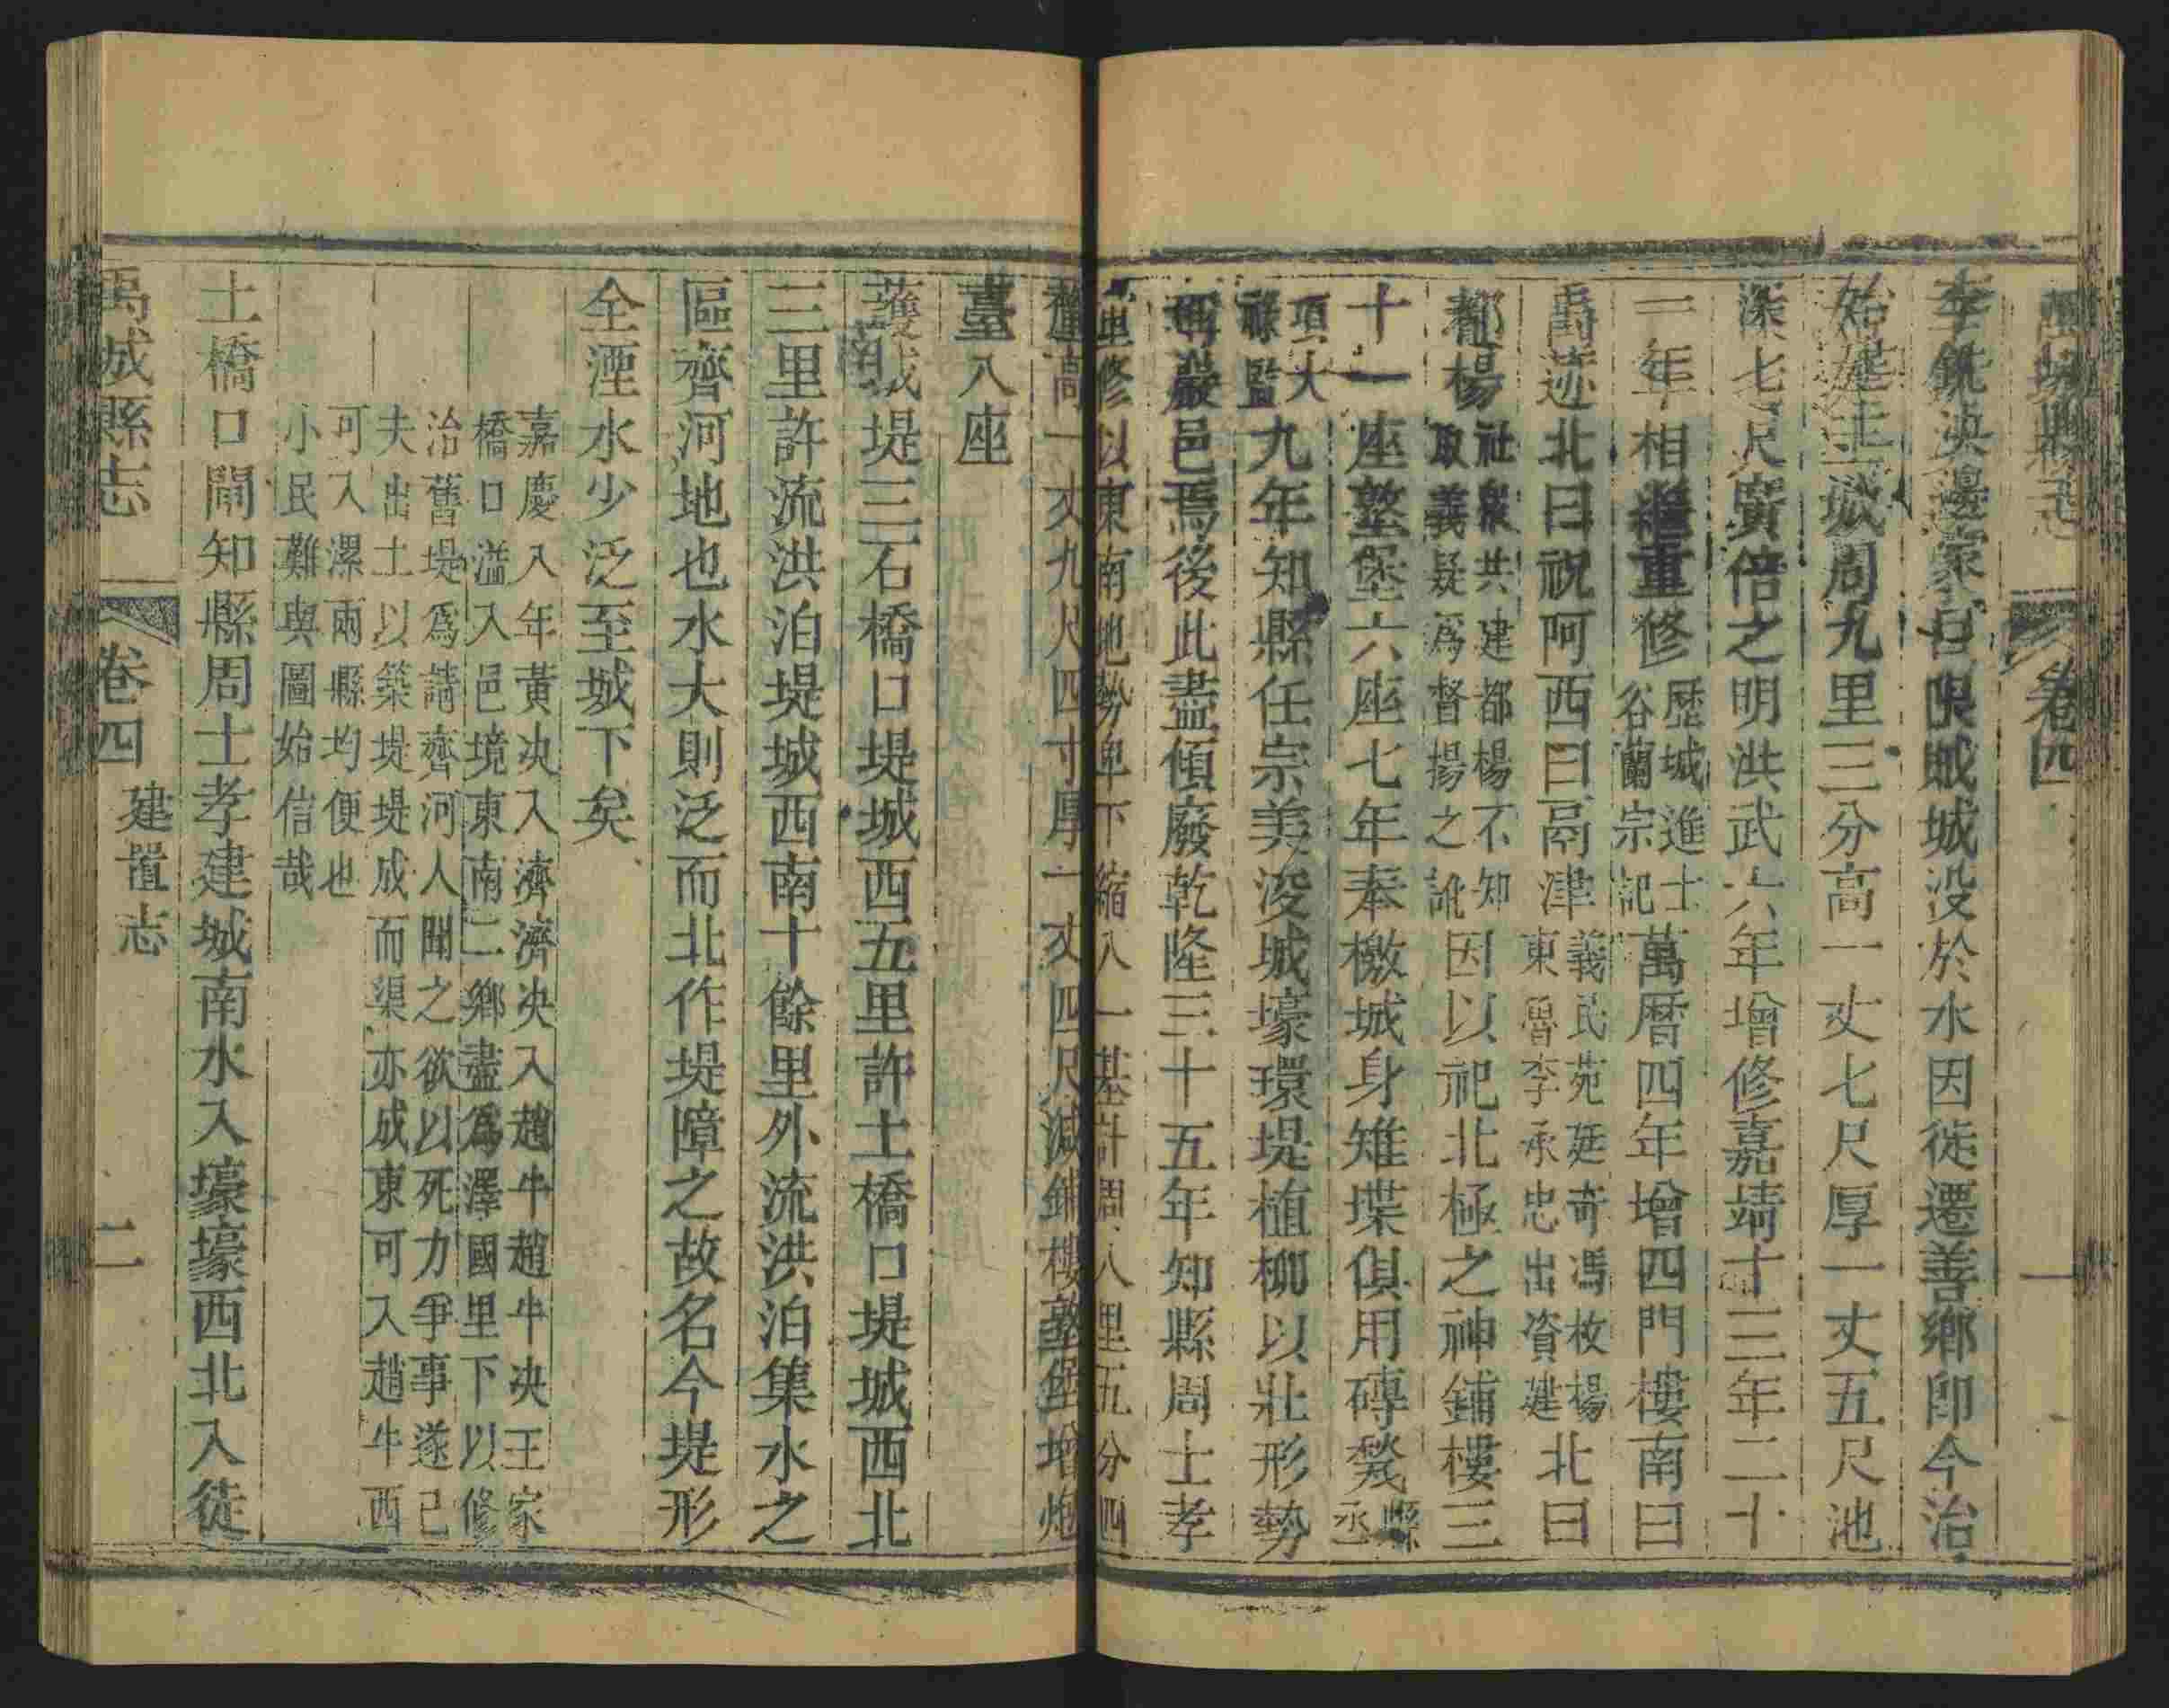 禹城縣志 卷四 一
李銑決邊家口限賊城没於水因徙遷善鄉卽今治
始建土城周九里三分高一丈七尺厚一丈五尺池
深七尺廣倍之明洪武六年增修嘉靖十三年二十
一年相繼重修歷城進士谷蘭宗記萬曆四年增四門樓南曰
禹蹟北曰祝阿西曰鬲津義民苑延奇馮枚楊東魯李承忠出資建北曰
都楊社衆共建都楊不知取義疑爲督揚之訛因以祀北極之神鋪樓三
十一座墪堡六座七年奉檄城身雉堞俱用磚甃縣丞
項大祿監九年知縣任宗美浚城壕環堤植柳以壯形勢
稱巖邑焉後此盡傾廢乾隆三十五年知縣周士孝
重修以東南地勢卑下縮入一基計周八里五分四
釐高一丈九尺四寸厚一丈四尺減鋪樓墪堡增炮
臺入座
護城堤三石橋口堤城西五里許土橋口堤城西北
三里許流洪泊堤城西南十餘里外流洪泊集水之
區齊河地也水大則泛而北作堤障之故名今堤形
全湮水少泛至城下矣
嘉慶入年黃决入濟濟决入趙牛趙牛决王家
橋口溢入邑境東南二鄉盡爲澤國里下以修
治舊堤爲請齊河人聞之欲以死力爭事遂已
夫出土以築堤堤成而渠亦成東可入趙牛西
可入漯兩縣均便也
小民難與圖始信哉
土橋口閘知縣周士孝建城南水入壕壕西北入徒
禹城縣志 卷四 建置志 二